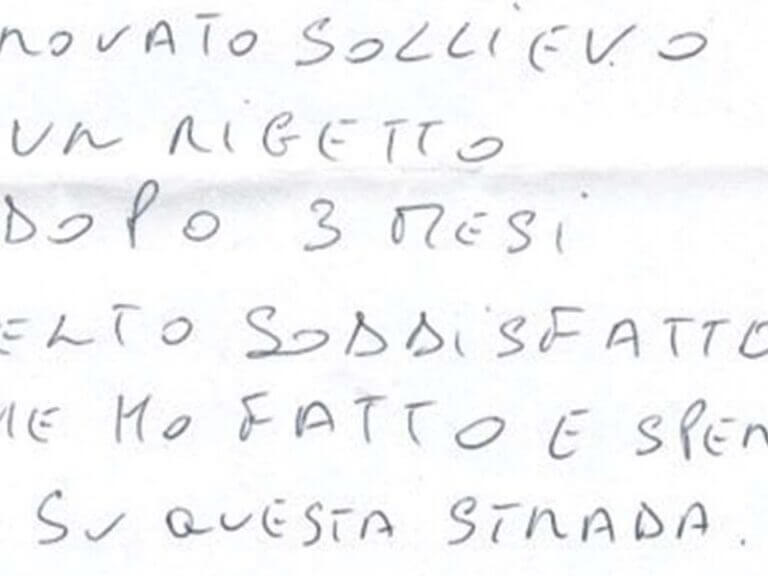 ROVATO SOLLIEVO
UN RIGETTO
DOPO 3 MESI
ELTO SODDISFATTO
ME HO FATTO E SPER
SU QUESTA STRADA.